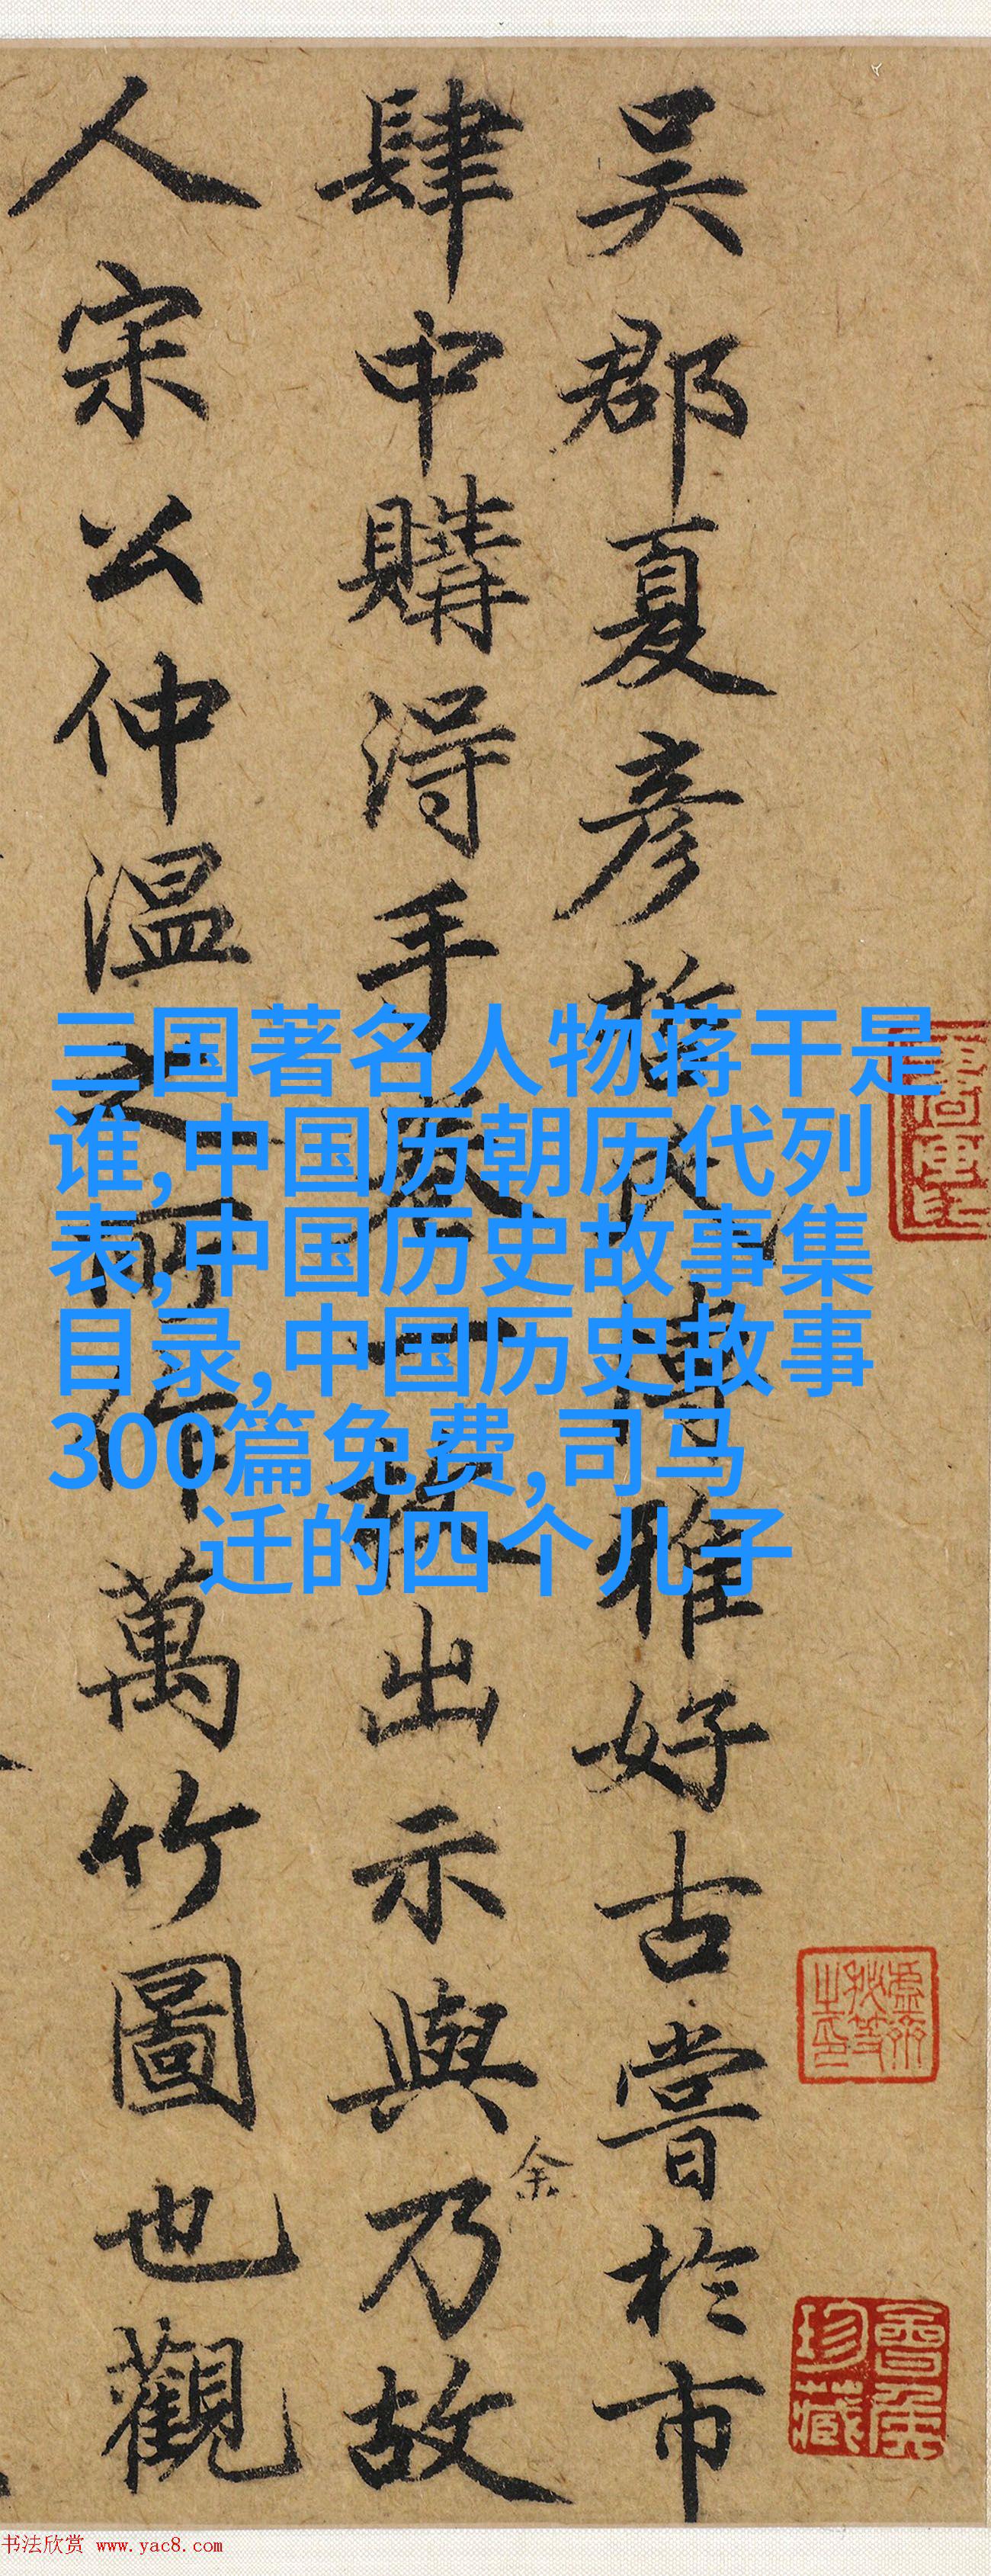 吴郡夏彦哲博雅好古嘗於市
肆中購得手卷一出示與余乃故
人宋公仲温之所作萬竹圖也觀
三国著名人物蒋干是
谁,中国历朝历代列
表,中国历史故事集
目录,中国历史故事
300篇免费,司马
迁的四个儿子
珍藏
书法欣赏 www.yac8.com